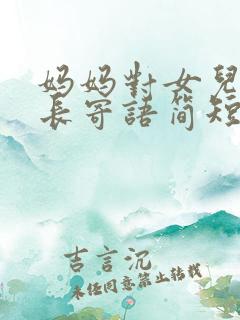 妈妈對女兒
長寄語简短
吉言沉
未经同意禁止转载